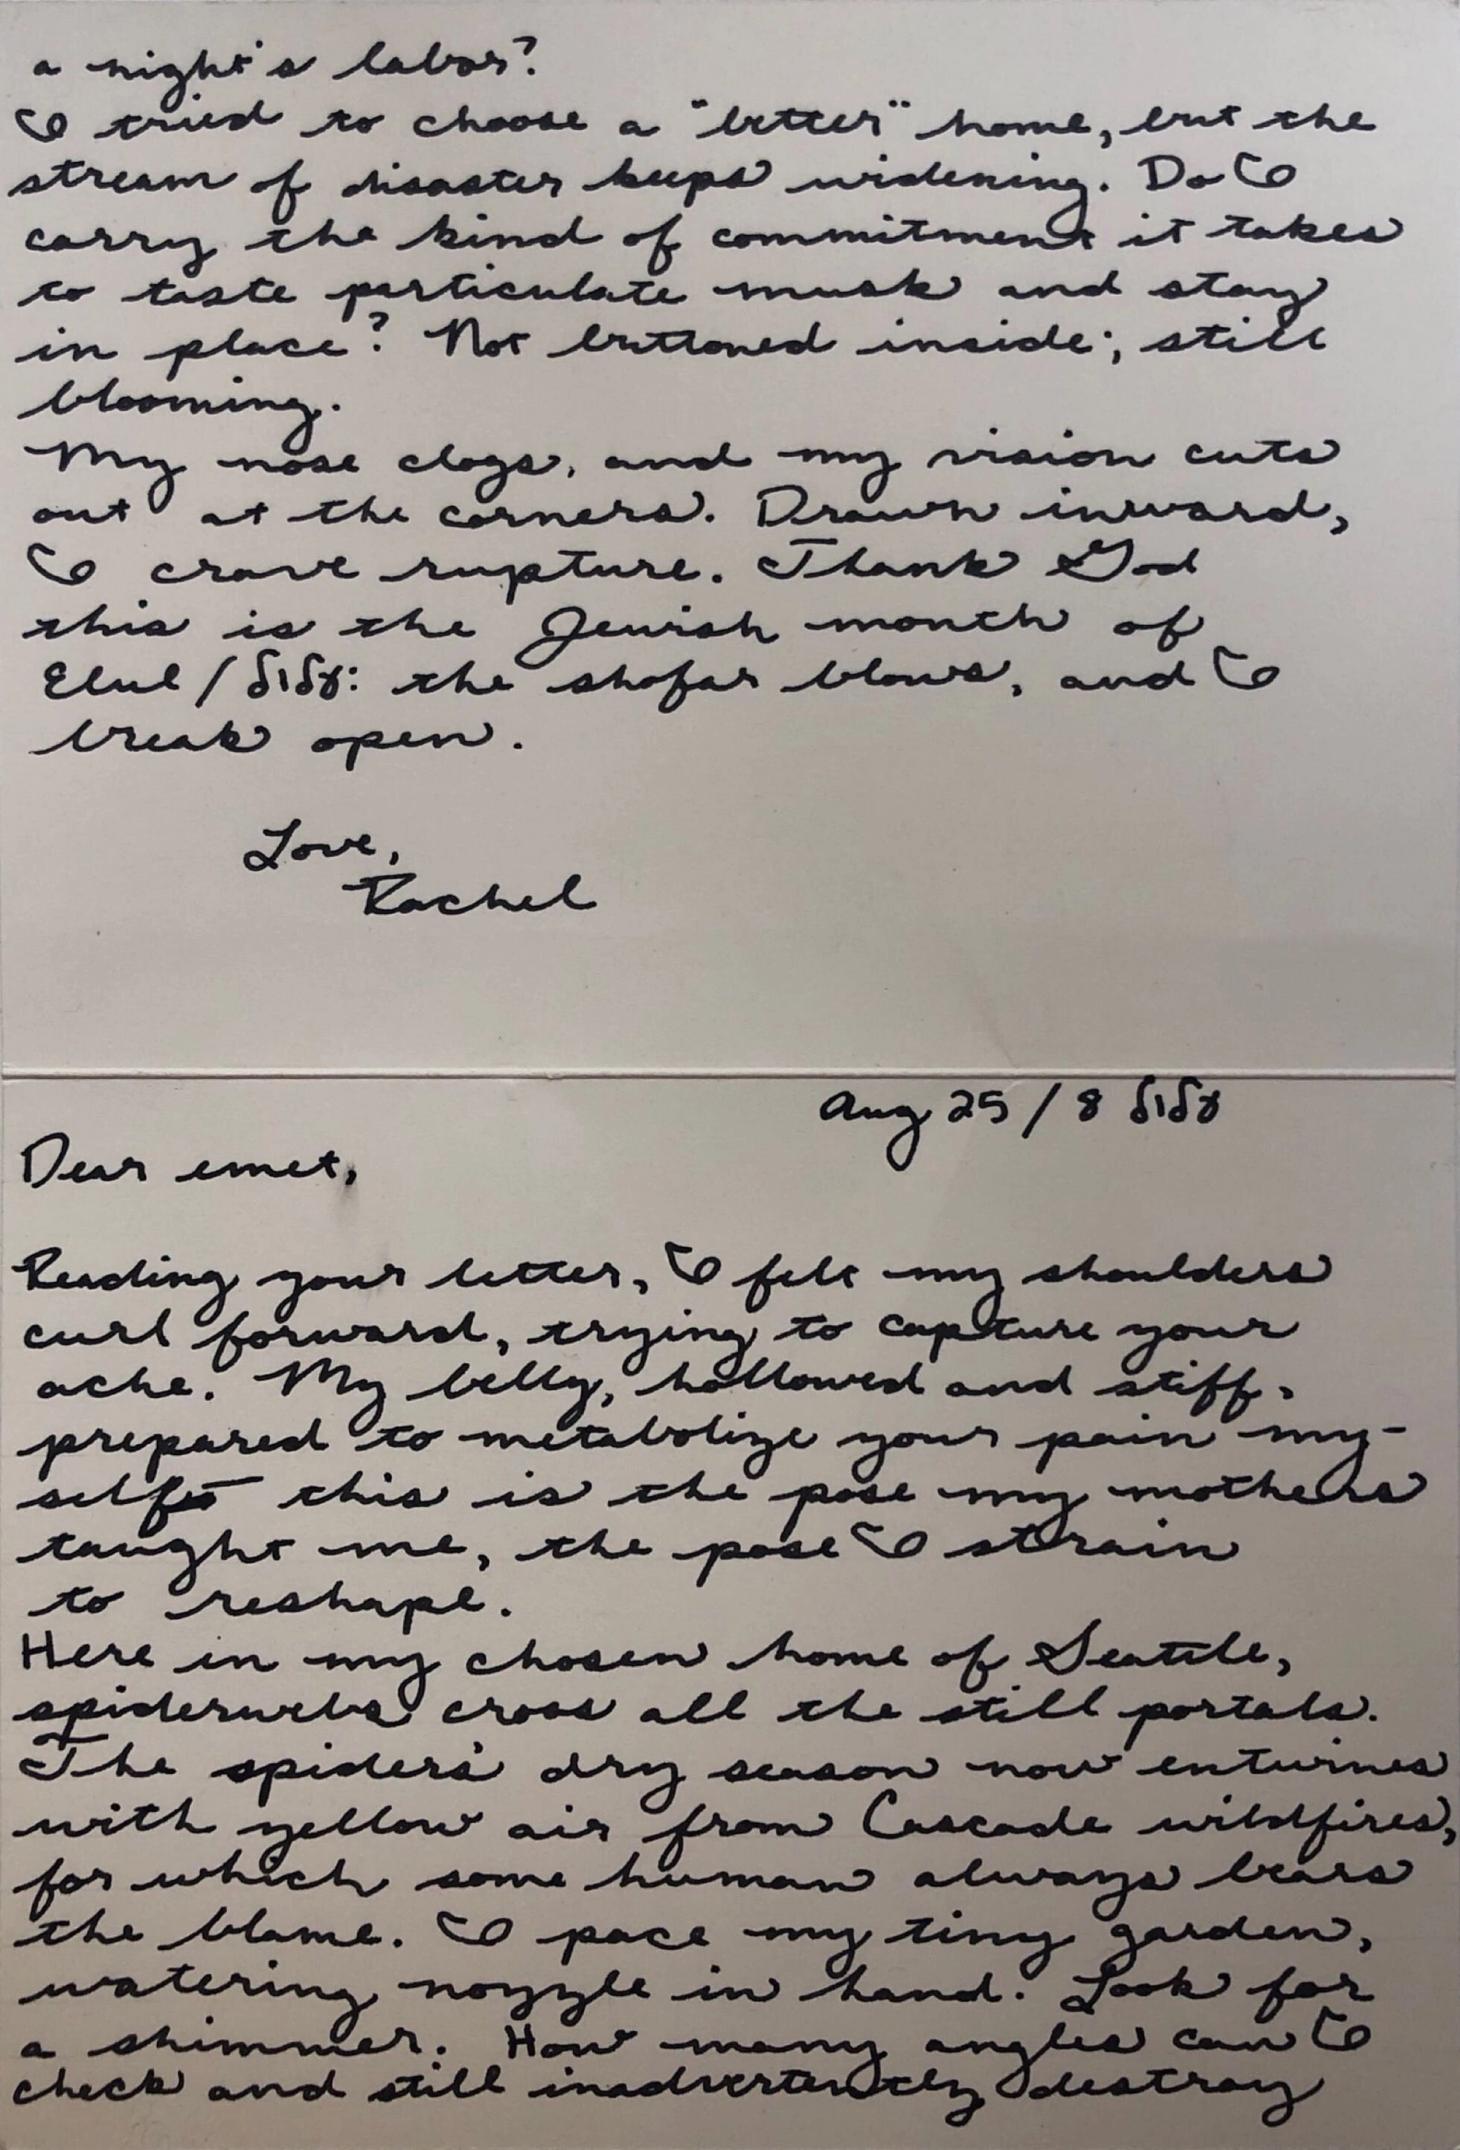 a night's labor?
I tried to choose a "better" home, but the
stream of disaster keeps widening. Do I
carry the kind of commitment it takes
to taste particulate musk and stay
in place? Not buttoned inside; still
blooming.
My nose clogs, and my vision cuts
out at the corners. Drawn inward,
I crave rupture. Thank God
this is the Jewish month of
Elul / אלול: the shofar blows, and I
break open.
Love,
Rachel
Aug 25 / 8 אלול
Dear emet,
Reading your letter, I felt my shoulders
curl forward, trying to capture your
ache. My belly, hollowed and stiff,
prepared to metabolize your pain my-
self— this is the pose my mothers
taught me, the pose I strain
to reshape.
Here in my chosen home of Seattle,
spiderwebs cross all the still portals.
The spiders' dry season now entwines
with yellow air from Cascade wildfires,
for which some human always bears
the blame. I pace my tiny garden,
watering nozzle in hand. Look for
a shimmer. How many angles can I
check and still inadvertently destroy